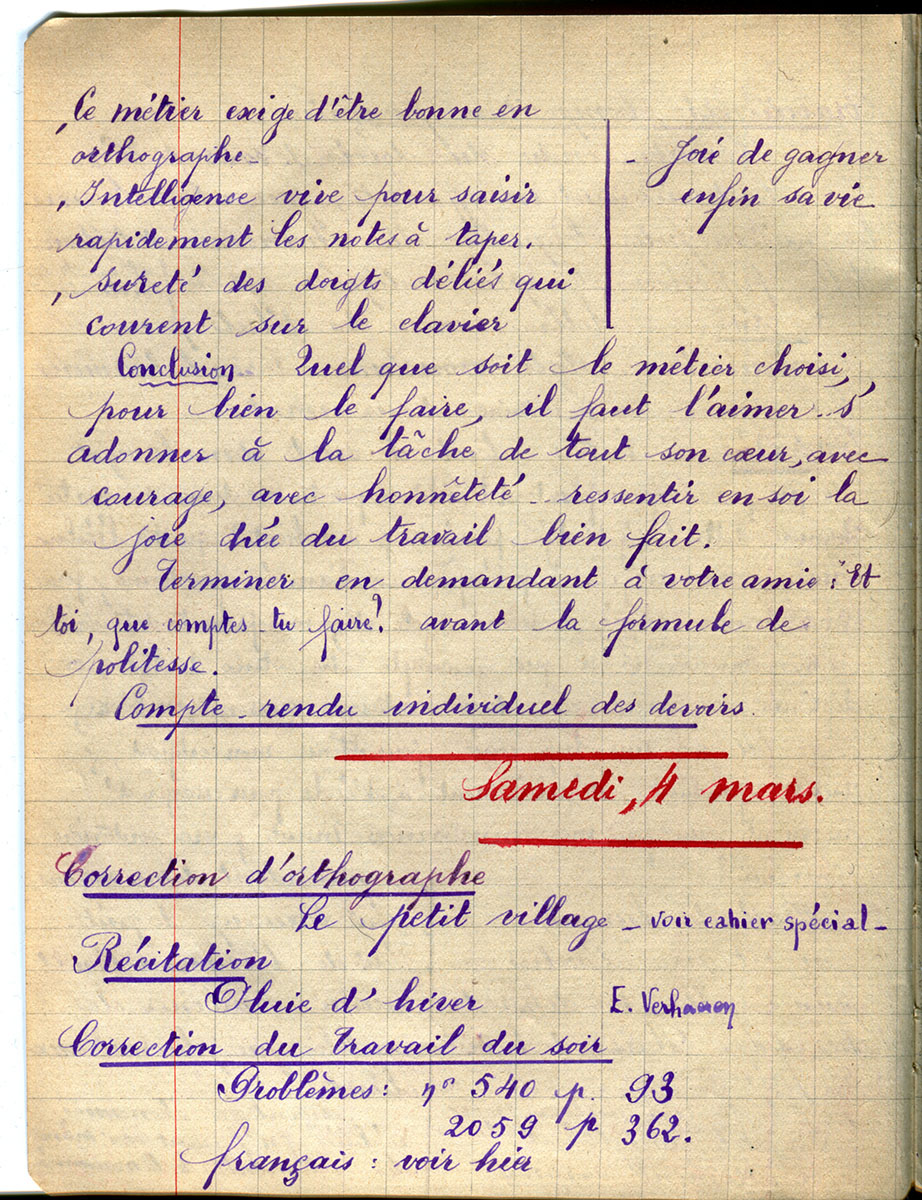 , Ce métier exige d'être bonne en
orthographe
, Intelligence vive pour saisir
rapidement les notes à taper.
, sureté des doigts déliés qui
courent sur le clavier
- Joie de gagner
enfin sa vie
Conclusion Quel que soit le métier choisi,
pour bien le faire, il faut l'aimer - s'
adonner à la tâche de tout son cœur, avec
courage, avec honnêteté - ressentir en soi la
joie née du travail bien fait.
Terminer en demandant à votre amie : Et
toi, que comptes-tu faire? avant la formule de
politesse.
Compte-rendu individuel des devoirs.
Samedi, 4 mars.
Correction d'orthographe
Le petit village - voir cahier spécial -
Récitation
Pluie d'hiver E. Verhaeren
Correction du travail du soir
Problèmes: n° 540 p. 93
2059 p 362.
français : voir hier